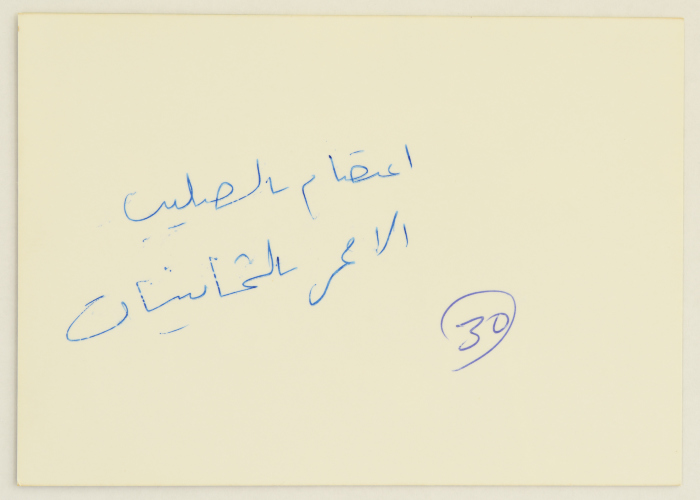 اعتصام بالصليب
الاحمر بالثمانينات
30